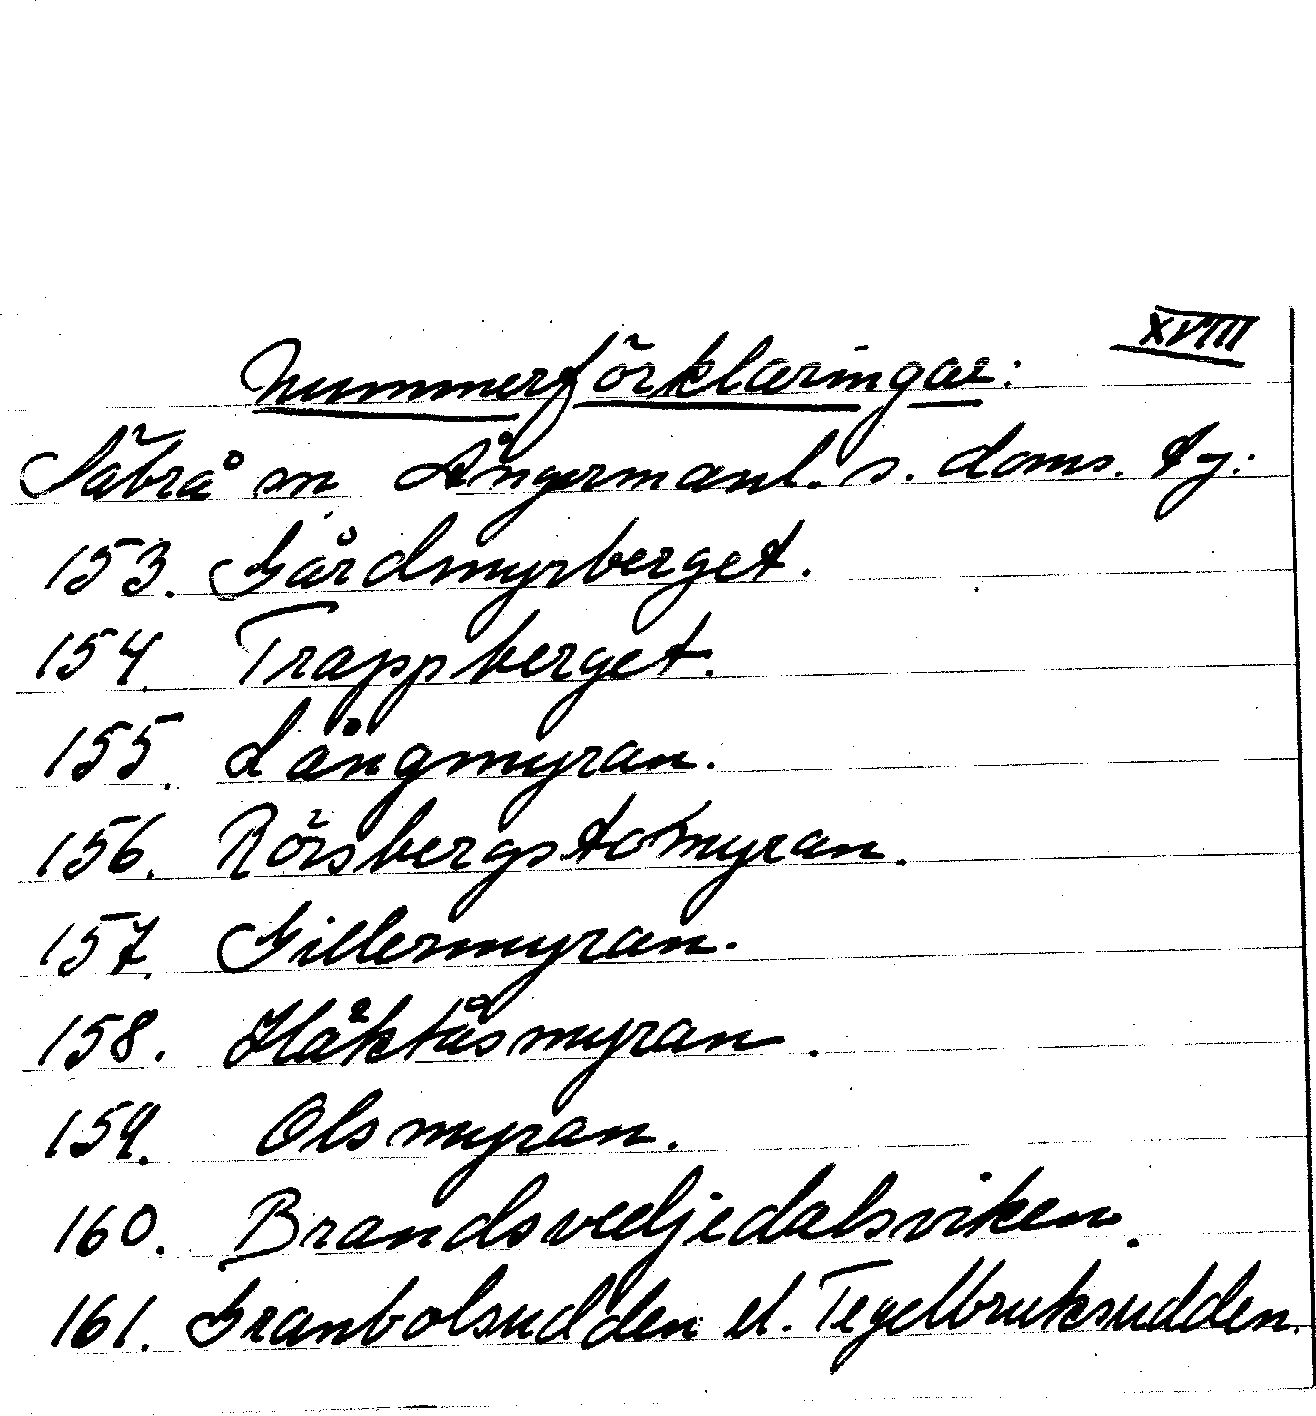 XVIII
Nummerförklaringar:
Säbrå sn Ångermanl. s. doms. tg:
153. Gårdmyrberget.
154. Trappberget.
155. Långmyran.
156. Rörsbergstomyran.
157. Gillermyran.
158. Håktåsmyran.
159. Olsmyran.
160. Brandsveljedalsviken.
161. Granbolsudden el. Tegelbruksudden.